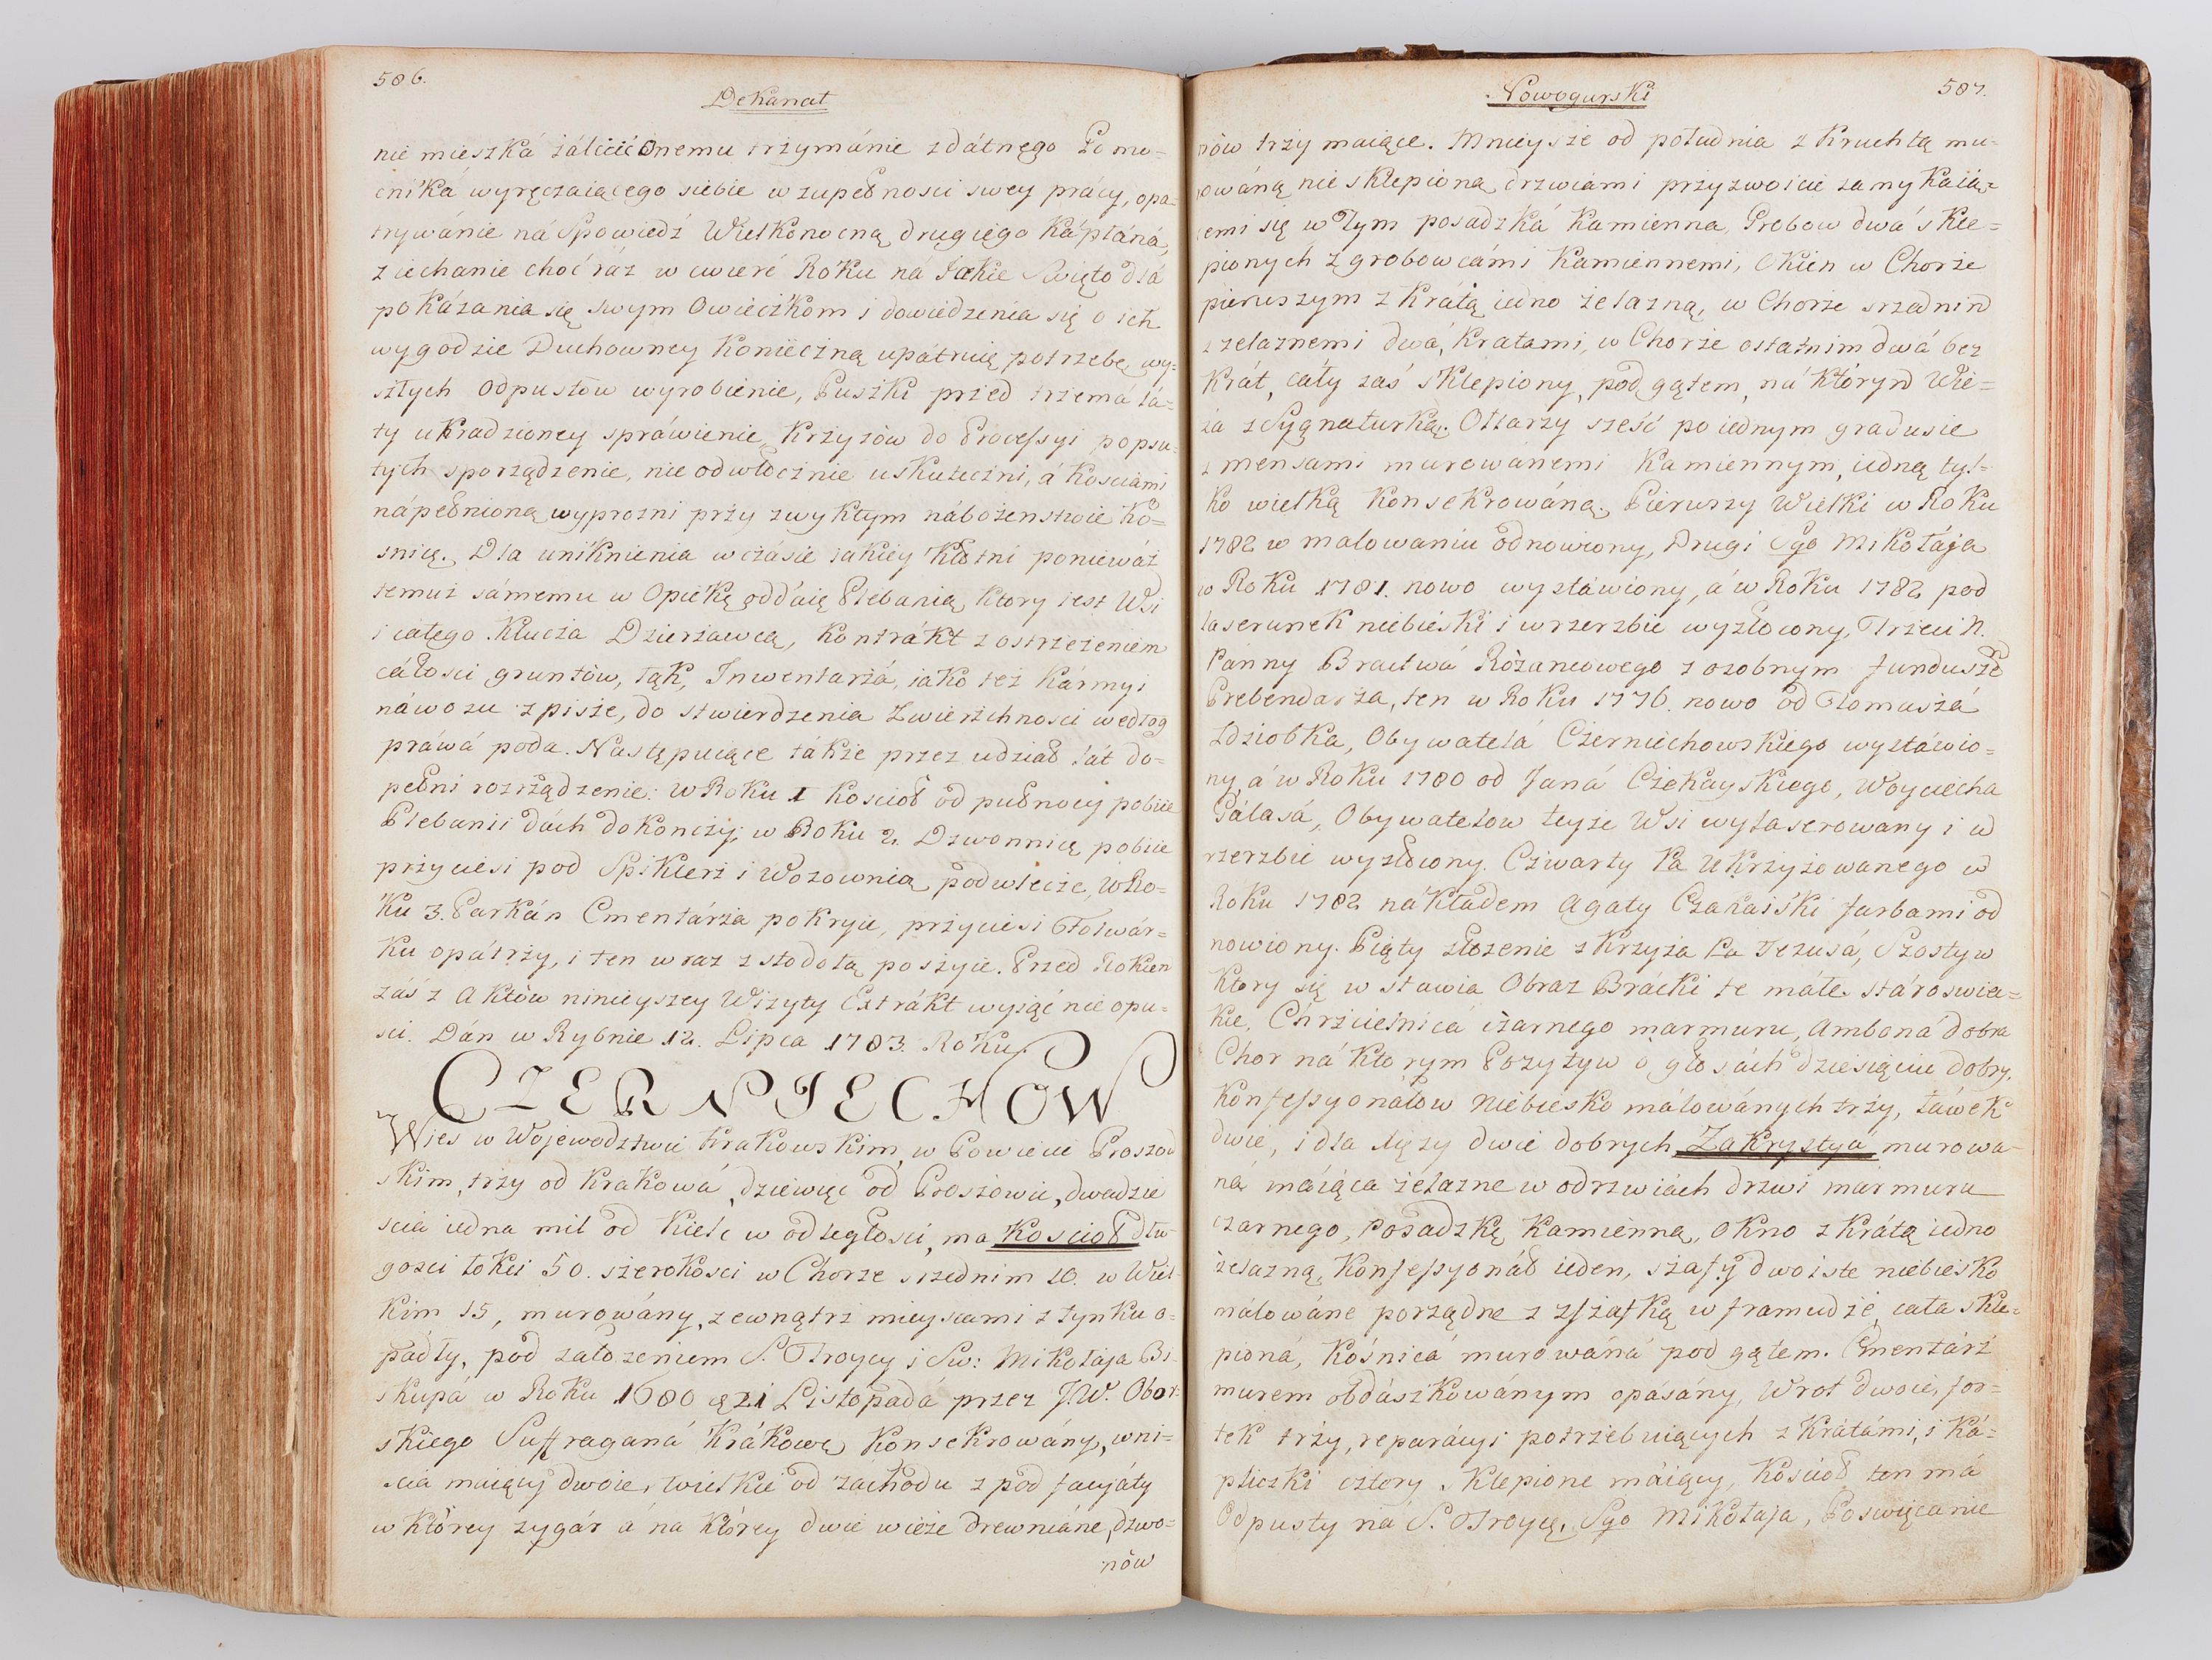 586.
Dekanat
nie mieszká zálicić Onemu trzymánie zdátnego Pomo=
cniká wyręczaiącego siebie w zupełnosci swey prácy, opa=
trywánie ná Spowiedź Wielkonocną drugiego Kápłáná,
ziechanie choć ráz w cwierć Roku ná Jakie Swięto dlá
pokázania się swym Owieczkom i dowiedzenia się o ich
wygodzie Duchowney Konieczną upátruię potrzebę, wy=
szłych Odpustów wyrobienie, Puszki przed trzemá lá=
ty ukradzioney spráwienie, Krzyżów do Processyi popsu=
tych sporządzenie, nie odwłocznie uskuteczni, á Kosciami
nápełnioną wyprozni przy zwykłym nábożenstwie Ko=
snicę. Dla uniknienia w czásie iakiey Kłotni ponieważ
temuż sámemu w Opiekę oddáię Plebanią, Ktory iest Wsi
i całego Klucza Dzierżawcą, Kontrákt z ostrzeżeniem
cáłosci gruntów, tąk, Inwentarzá, iako też Kármy i
náwozu spisze, do stwierdzenia Zwierzchnosci według
práwá poda. Następuiące tákże przez udział lát do=
pełni rozrządzenie: W Roku 1 Kościoł od pułnocy pobiie
Plebanii dách dokonczy; w Roku 2. Dzwonnicę pobiie
przyciesi pod Spiklerz i Wozownią podwlecze, W Ro=
ku 3. Parkán Cmentárza pokryie, przyciesi Folwár=
ku opátrzy, i ten wraz z stodołą poszyie. Przed Rokiem
záś z Aktów ninieyszey Wizyty Extrákt wyiąć nie opu=
sci. Dán w Rybnie 12. Lipca 1783. Roku.
CZERNIECHOW
Wies w Wojewodztwie Krakowskim, w Powiecie Proszow
skim, trzy od Krakowá, dziewięc od Proszowic, dwadzie
scia iedna mil od Kielc w odległosci, ma Kościoł dłu
gosci łokci 50. szerokosci w Chorze srzednim 10. w Wiel=
kim 15, murowány, zewnątrz mieyscami z tynku o=
padły, pod założeniem S. Troycy i Sw: Mikołaja Bi=
skupá w Roku 1680 21 Listopadá przez J.W. Obor=
skiego Suffraganá Krákowę Konsekrowány, wni=
scia maiący dwoie, wielkie od zachodu z pod facyáty
w Ktorey zygár á na Ktorey dwie wieże drewniáne, dzwo=
nów
Nowogurski
587.
nów trzy maiące. Mnieysze od południa z Kruchtą mu=
rowáną nie sklepioną drzwiámi przyzwoicie zamykaią=
cemi się w tym posadzká Kamienna, Grobow dwá skle=
pionych z grobowcámi Kamiennemi, Okien w Chorze
pierwszym z Krátą iedno żelazną, w Chorze srzednim
z zelaznemi dwá, Kratami, w Chorze ostatnim dwá bez
Krát, cáły záś sklepiony, pod gątem, ná którym Wie=
żá z Sygnaturką. Ołtarzy sześć po iednym gradusie
z mensami murowánemi Kamiennym, iedną tyl=
ko wielką Konsekrowáną. Pierwszy Wielki w Roku
1782 w malowaniu odnowiony, Drugi Sgo Mikołája
w Roku 1781. nowo wystáwiony, á w Roku 1782 pod
laserunek niebieski i w rzerzbie wyzłocony, Trzeci N.
Panny Bractwá Różancowego z osobnym funduszem
Prebendarza, ten w Roku 1776. nowo od Tomaszá
Dziobka, Obywatelá Czerniechowskiego wystáwio=
ny, á w Roku 1780 od Janá Czekayskiego, Woyciecha
Gálasá, Obywatelow teyże Wsi wylaserowany i w
rzerzbie wyzłocony. Czwarty Pa Ukrzyżowanego w
Roku 1782 nakładem Agaty farbami od
nowiony. Piąty złożenie z Krzyża Pa Jezusá, Szosty w
Ktory się wstawia Obraz Brácki te máłe stároswie=
kie, Chrzcielnicá czarnego marmuru, Amboná dobra
Chor ná Ktorym Pozytyw o głosách dziesięciu dobry.
Konfessyonáłow niebiesko málowánych trzy, Láwek
dwie, i dla Xięży dwie dobrych Zakrystya murowa=
ná máiąca żelazne w odrzwiách drzwi marmuru
czarnego, Posadzkę Kamienną, Okno z Krátą iedno
żelazną, Konfessyonáł ieden, száfy dwoiste niebiesko
málowáne porządne z száfką w framudze, cała skle=
pioná, Kośnicá murowáná pod gątem. Cmentárz
murem obdászkowánym opásány, Wrot dwoie, for=
tek trzy, reparácyi potrzebuiących z Krátámi, i Ká=
pliczki cztery sklepione máiący, Kościoł ten má
Odpusty ná S. Troycę, Sgo Mikołaja, Poswięcanie